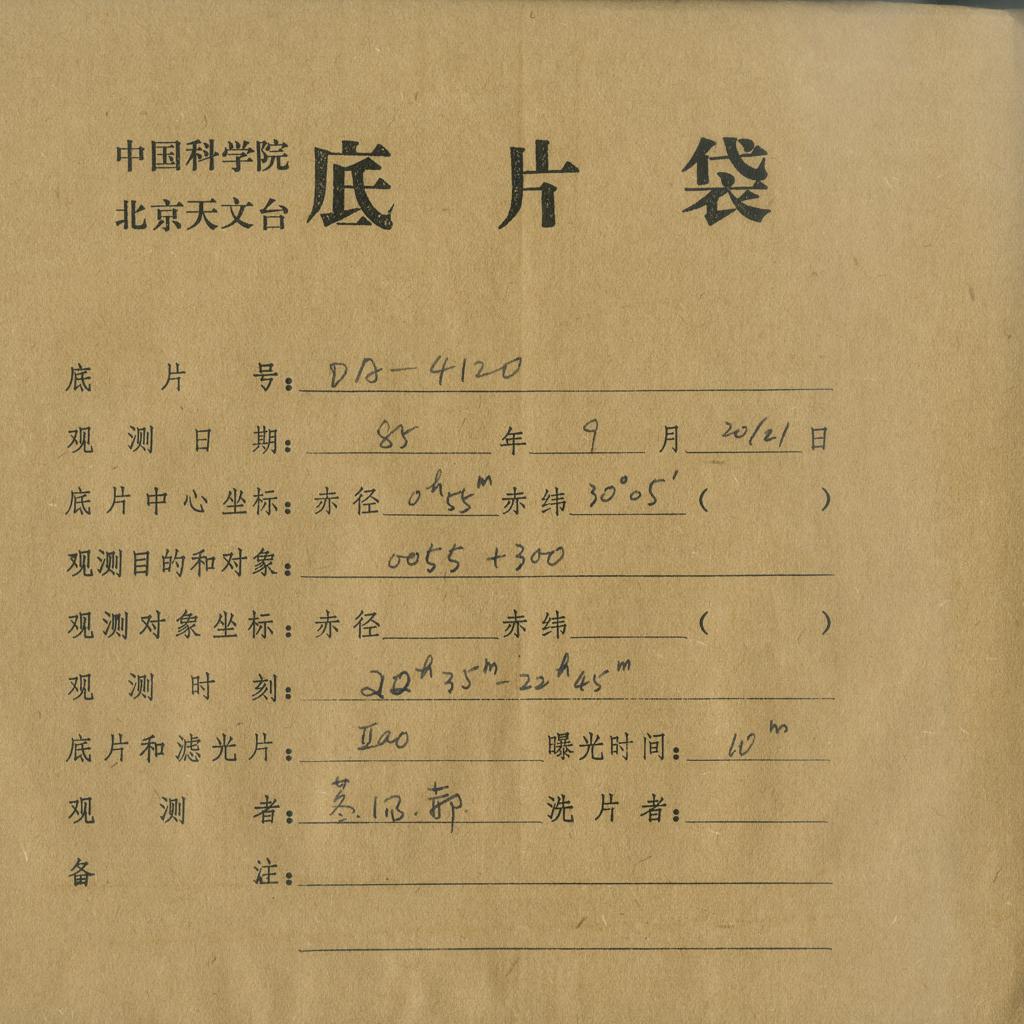 中国科学院
北京天文台
底片袋
底片号：DA-4120
观测日期：85年9月20/21日
底片中心坐标：赤径 0h55m 赤纬 30°05′（ ）
观测目的和对象：0055+300
观测对象坐标：赤径 赤纬 （ ）
观测时刻：22h35m-22h45m
底片和滤光片：IIaO 曝光时间：10m
观测者：郝 洗片者：
备注：